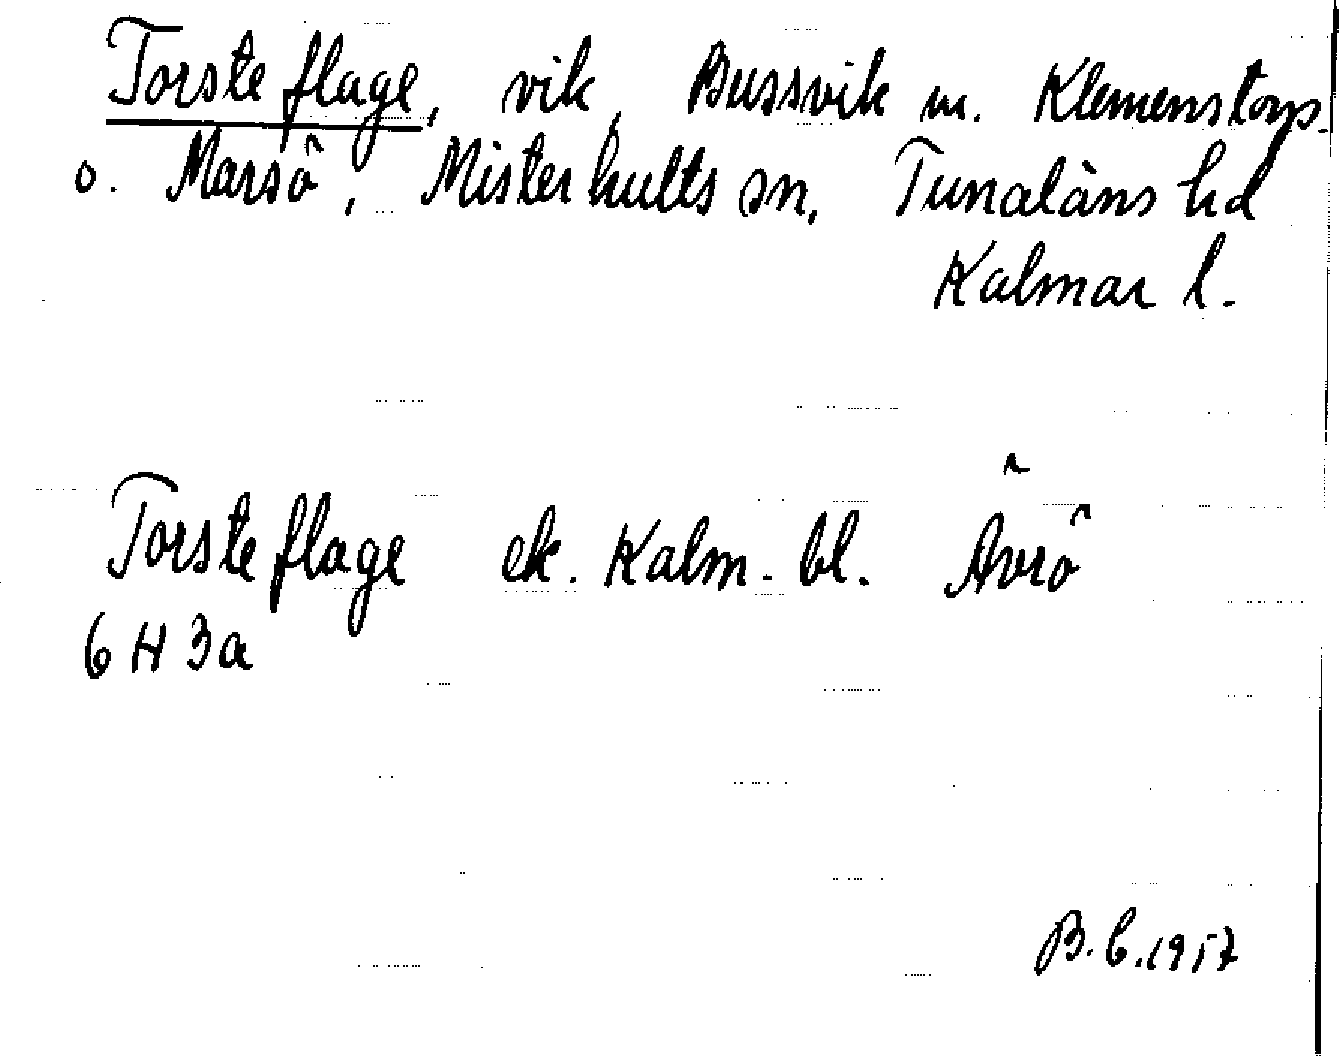 Torsteflage, vik, Bussvik m. Klemenstorp
o. Marsö, Misterhults sn, Tunaläns hd
Kalmar l.
Torsteflage ek. Kalm. bl. Ävrö
6 H 3a
B.C. 1957